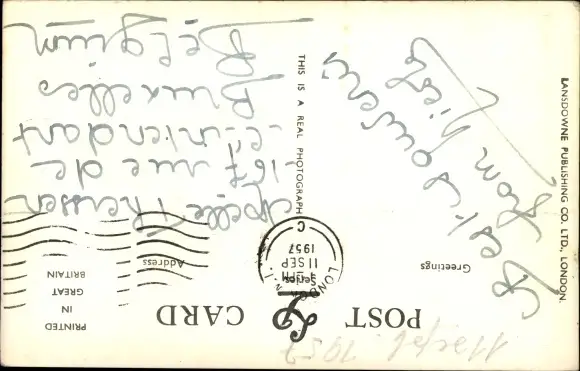 11 Sept 1957
POST CARD
Greetings
Address
PRINTED
IN
GREAT
BRITAIN
LONDON, N.1.
11 SEP
1957
C
Series
THIS IS A REAL PHOTOGRAPH
LANSDOWNE PUBLISHING CO. LTD., LONDON.
Best souvenirs
from
167 rue de
l'intendant
Bruxelles
Belgium